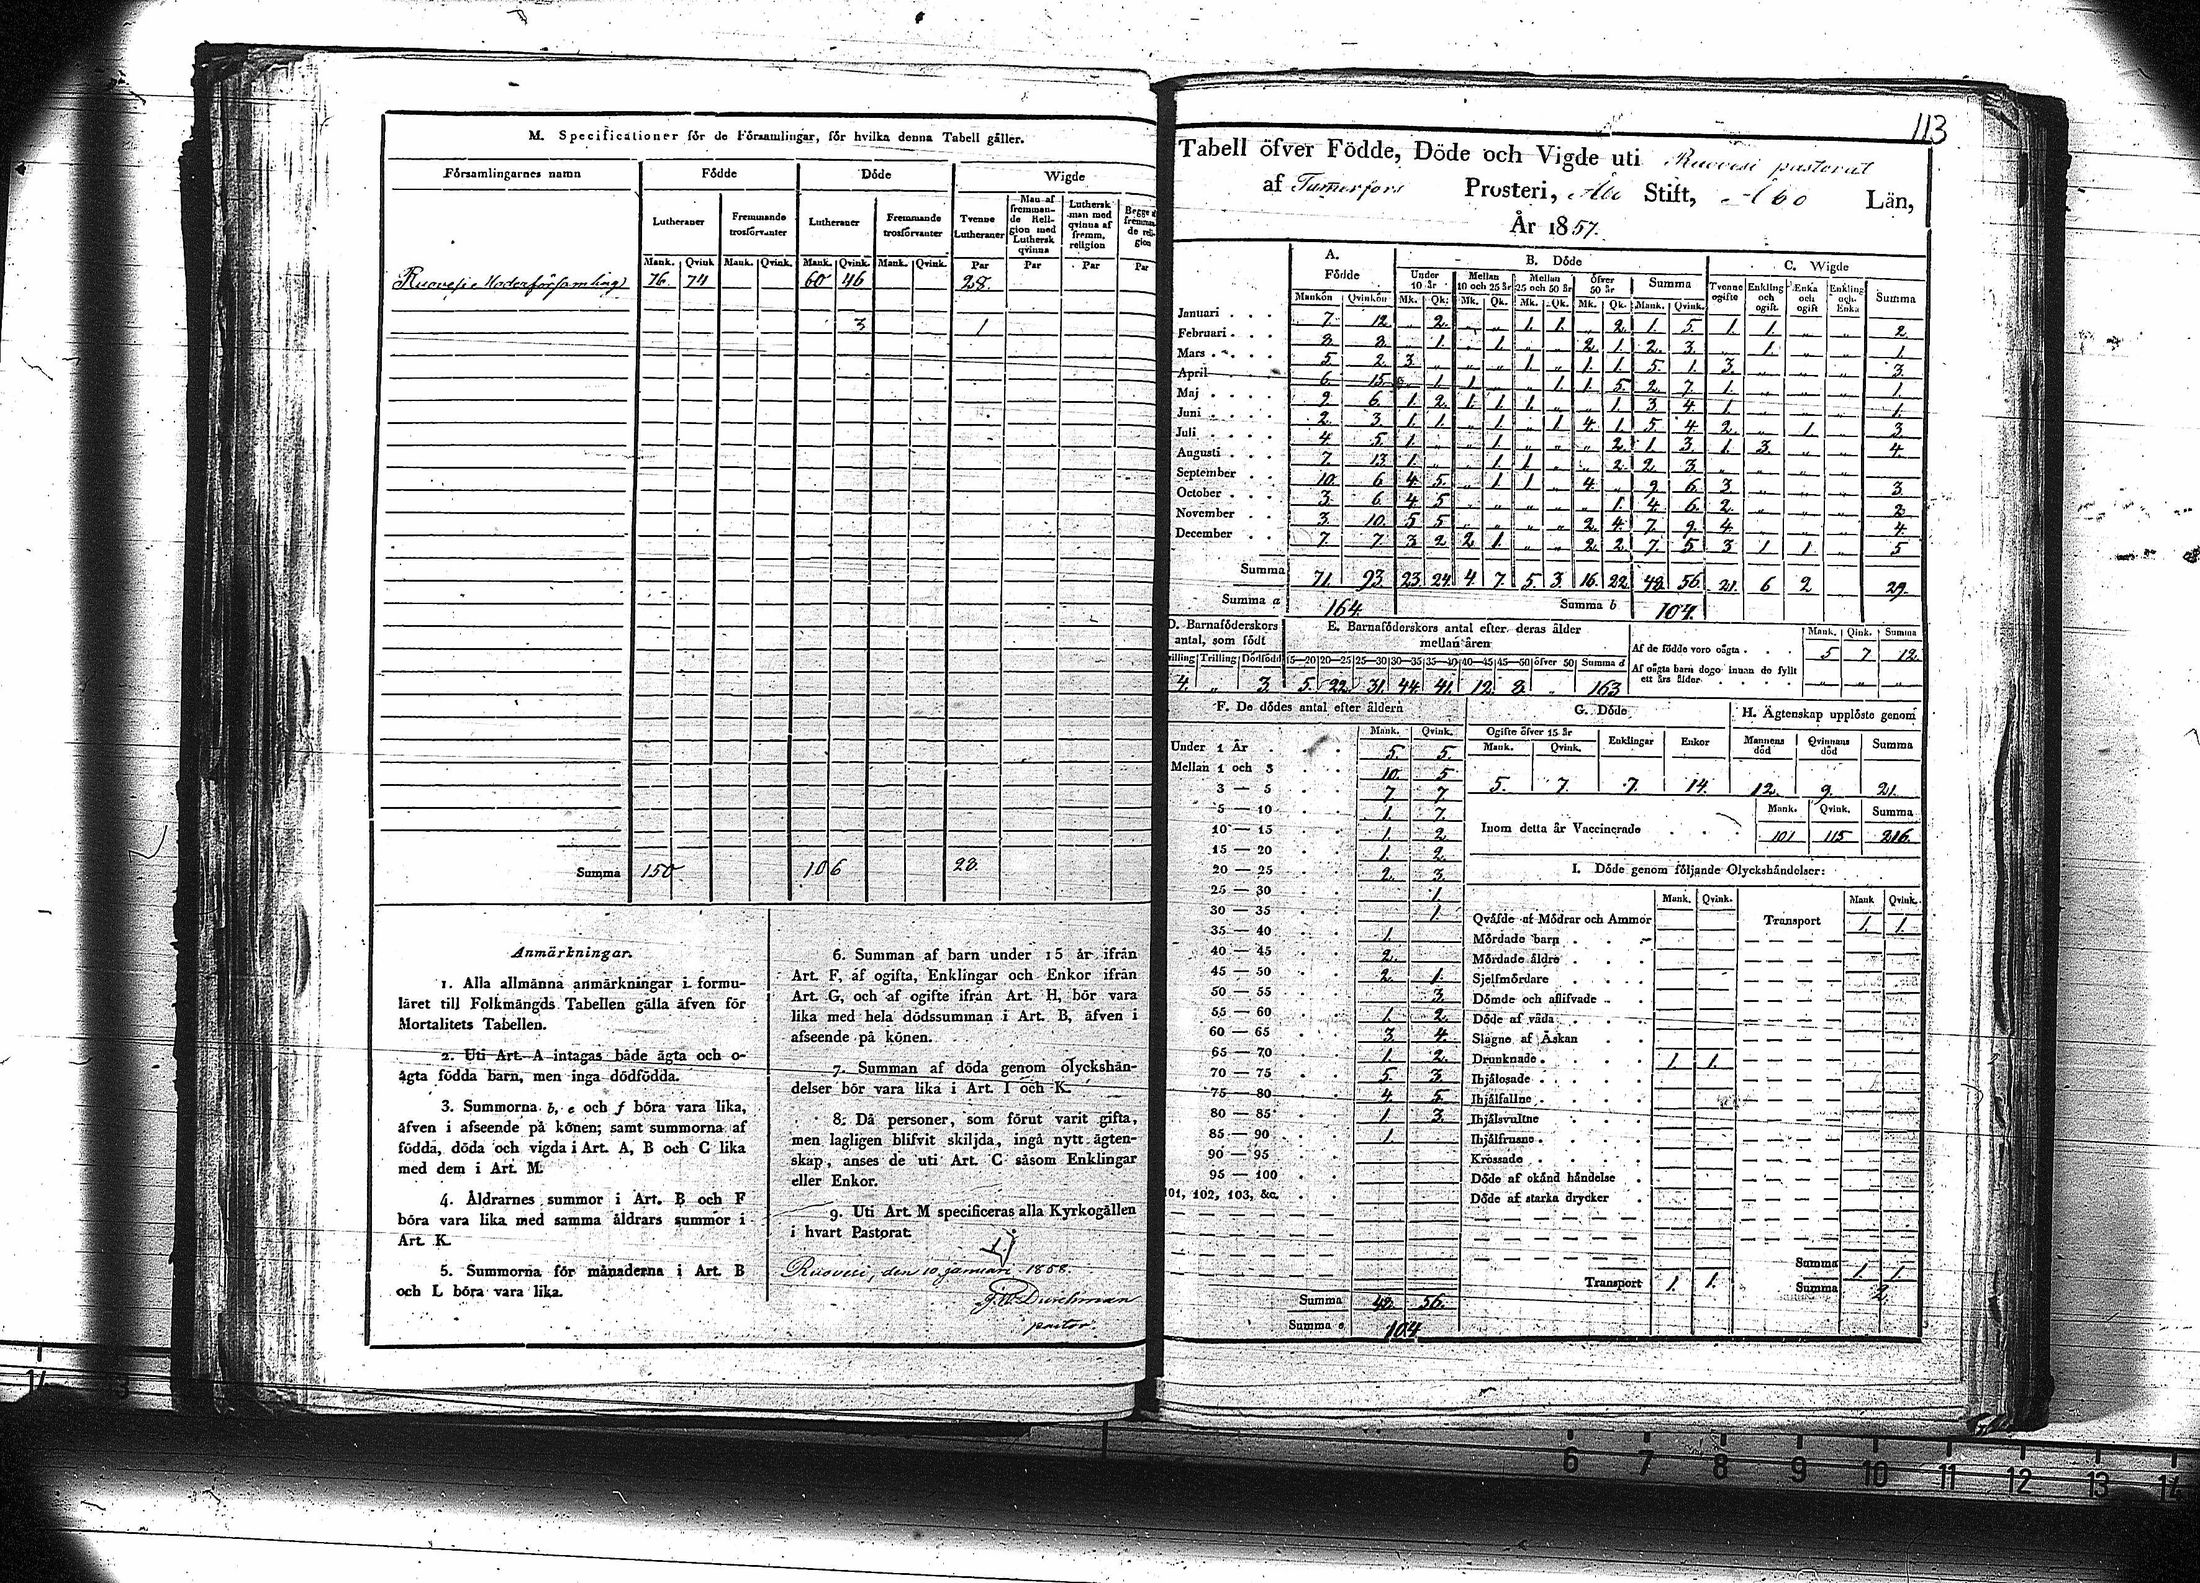 M. Specificationer för de Församlingar, för hvilka denna Tabell gäller.
Församlingarnes namn Födde Döde Wigde
Lutheraner Fremmande trosförvanter Lutheraner Fremmande trosförvanter Tvenne Lutheraner Man af fremmande Religion med Luthersk qvinna Luthersk man med qvinna af fremm. religion Begge af fremmande religion
Mank. Qvink Mank. Qvink. Mank. Qvink. Mank. Qvink. Par Par Par Par
Ruovesi Moderförsamling 76 74 60 46 28.
3 1
Summa 150 106 28.
Anmärkningar.
1. Alla allmänna anmärkningar i formu-
läret till Folkmängds Tabellen gälla äfven för
Mortalitets Tabellen.
2. Uti Art. A intagas både ägta och o-
ägta födda barn, men inga dödfödda.
3. Summorna b, e och f böra vara lika,
äfven i afseende på könen; samt summorna af
födda, döda och vigda i Art. A, B och C lika
med dem i Art. M.
4. Åldrarnes summor i Art. B och F
böra vara lika med samma åldrars summor i
Art. K.
5. Summorna för månaderna i Art. B
och L böra vara lika.
6. Summan af barn under 15 år ifrån
Art. F, af ogifta, Enklingar och Enkor ifrån
Art. G, och af ogifte ifrån Art. H, bör vara
lika med hela dödssumman i Art. B, äfven i
afseende på könen.
7. Summan af döda genom olyckshän-
delser bör vara lika i Art. I och K.
8. Då personer, som förut varit gifta,
men lagligen blifvit skiljda, ingå nytt ägten-
skap, anses de uti Art. C såsom Enklingar
eller Enkor.
9. Uti Art. M specificeras alla Kyrkogällen
i hvart Pastorat.
Ruovesi, den 10 januari 1858.
Durchman
pastor.
113
Tabell öfver Födde, Döde och Vigde uti Ruovesi pastorat
af Tamerfors Prosteri, Åbo Stift, Åbo Län,
År 1857.
A. Födde B. Döde C. Wigde
Under 10 år Mellan 10 och 25 år Mellan 25 och 50 år Öfver 50 år Summa Tvenne ogifte Enkling och ogift. Enka och ogift Enkling och Enka Summa
Mankön Qvinkön Mk. Qk. Mk. Qk. Mk. Qk. Mk. Qk. Mank. Qvink.
Januari 7. 12 „ 2. „ „ 1. 1. „ 2. 1. 5. 1. 1. „ „ 2.
Februari 8. 8. „ 1. „ 1. „ „ 2. 1. 2. 3. „ 1. „ „ 1.
Mars 5 2 3. „ „ „ 1 „ 1. 1 5. 1. 3. „ „ „ 3.
April 6. 15. „ 1 1 „ „ 1 1 5. 2. 7. 1. „ „ „ 1.
Maj 9. 6. 1. 2. 1. 1. 1. „ „ 1. 3. 4. 1. „ „ „ 1.
Juni 2. 3. 1. 1. „ „ 1. 1 4. 1 5 4. 2. „ 1. „ 3.
Juli 4 5. 1. „ „ 1. „ „ „ 2. 1. 3. 1. 3. „ „ 4.
Augusti 7. 13. 1. „ „ 1. 1. „ „ 2. 2. 3 „ „ „ „
September 10. 6 4. 5. „ 1 1. „ 4. „ 9. 6. 3 „ „ „ 3.
October 3. 6. 4 5 „ „ „ „ „ 1. 4. 6. 2. „ „ „ 2
November 3. 10. 5 5 „ „ „ „ 2. 4. 7. 9. 4. „ „ „ 4.
December 7. 7. 3 2 2. 1. „ „ 2. 2 7. 5 3 1 1 „ 5
Summa 71. 93. 23 24. 4. 7. 5. 3. 16. 22. 48. 56. 21. 6 2 29.
Summa a 164. Summa b 104.
D. Barnaföderskors antal, som födt E. Barnaföderskors antal efter deras ålder mellan åren
Trilling Dödfödd 15—20 20—25 25—30 30—35 35—40 40—45 45—50 öfver 50 Summa d
4. „ 3. 5. 22. 31. 44. 41. 12. 8. „ 163
Mank. Qink. Summa
Af de födde voro oägta 5 7 12.
Af oägta barn dogo innan de fyllt ett års ålder „ „ „
F. De dödes antal efter åldern
Mank. Qvink.
Under 1 År 5. 5.
Mellan 1 och 3 10. 5
3 — 5 7 7.
5 — 10 1. 7.
10 — 15 1. 2
15 — 20 1. 2.
20 — 25 2. 3.
25 — 30 1
30 — 35 1.
35 — 40 1.
40 — 45 2.
45 — 50 2. 1.
50 — 55 3.
55 — 60 1. 2.
60 — 65 3. 4.
65 — 70 1. 2.
70 — 75 5. 3.
75 — 80 4. 5
80 — 85 1 3.
85 — 90 1.
90 — 95
95 — 100
101, 102, 103, &c.
Summa 48. 56.
Summa e 104
G. Döde
Ogifte öfver 15 år Enklingar Enkor
Mank. Qvink.
5. 7. 7. 14.
H. Ägtenskap upplöste genom
Mannens död Qvinnans död Summa
12. 9. 21.
Mank. Qvink. Summa
Inom detta år Vaccinerade 101 115 216.
I. Döde genom följande Olyckshändelser:
Mank. Qvink. Mank Qvink.
Qväfde af Mödrar och Ammor Transport 1. 1.
Mördade barn
Mördade äldre
Sjelfmördare
Dömde och aflifvade
Döde af våda
Slagne af Åskan
Drunknade 1. 1.
Ihjälosade
Ihjälfallne
Ihjälsvultne
Ihjälfrusne
Krossade
Döde af okänd händelse
Döde af starka drycker
Transport 1. 1.
Summa 1. 1
Summa 2.
14 6 7 8 9 10 11 12 13 14